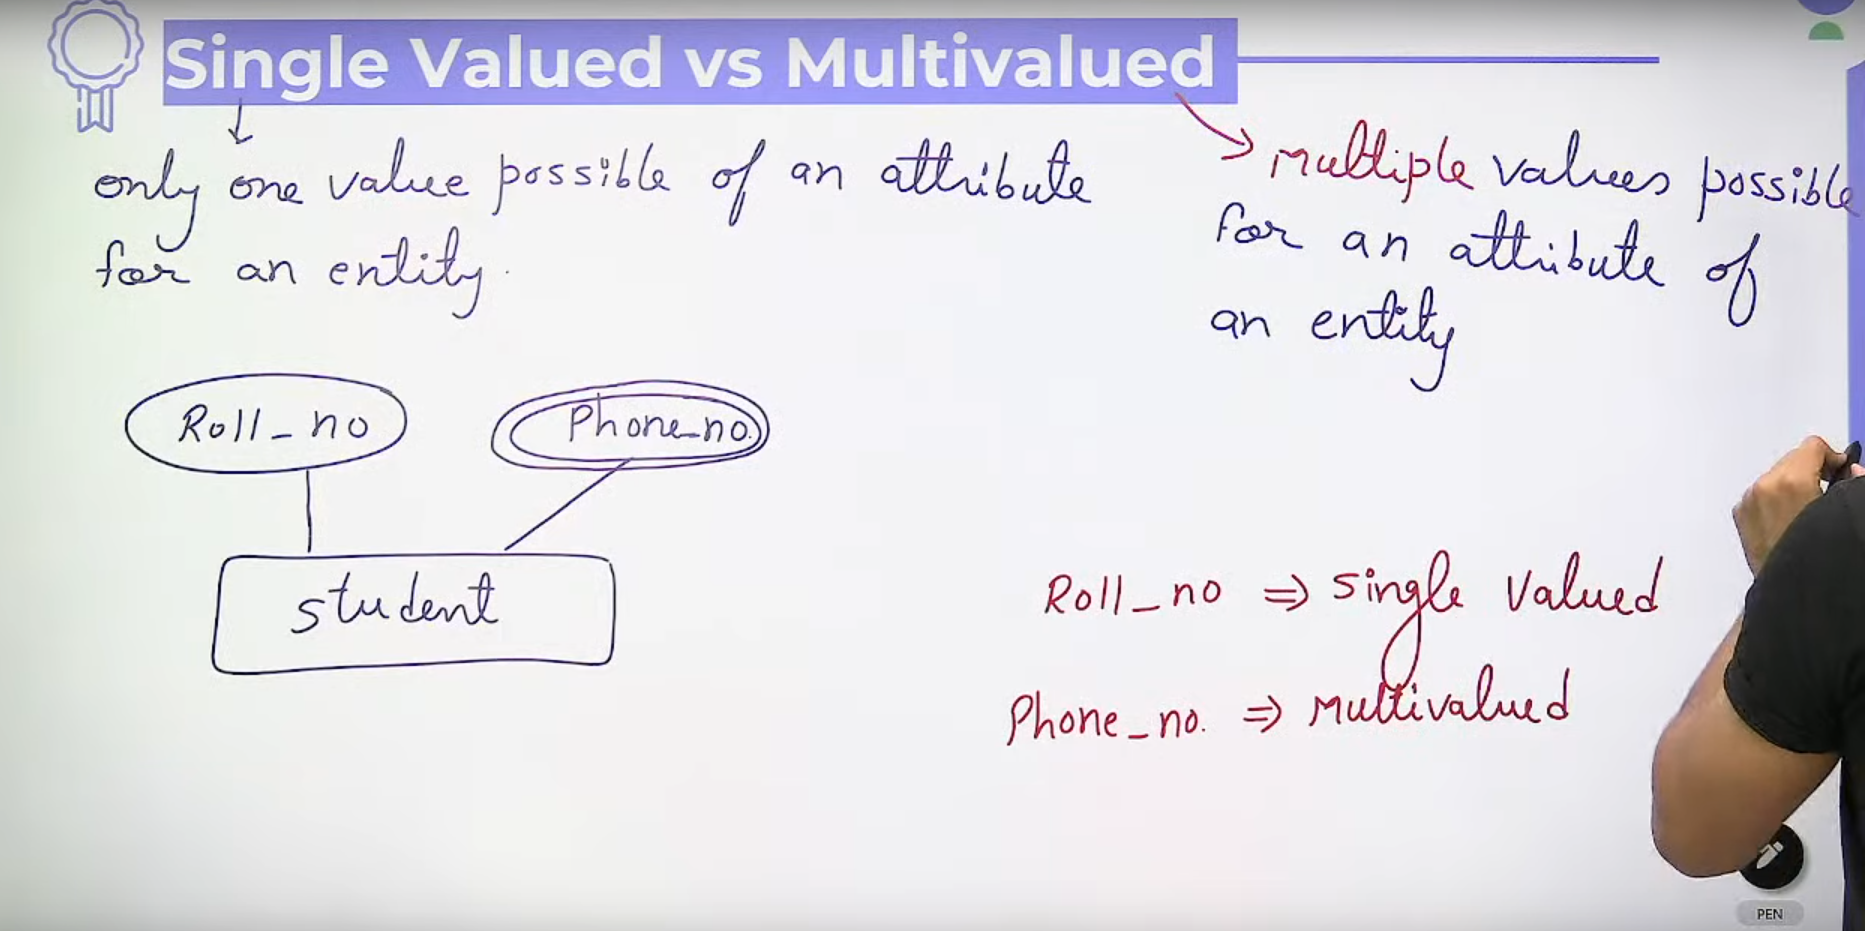 Single Valued vs Multivalued
only one value possible of an attribute
for an entity.
multiple values possible
for an attribute of
an entity
Roll_no
Phone_no.
student
Roll_no ⇒ single valued
Phone_no. ⇒ multivalued
PEN